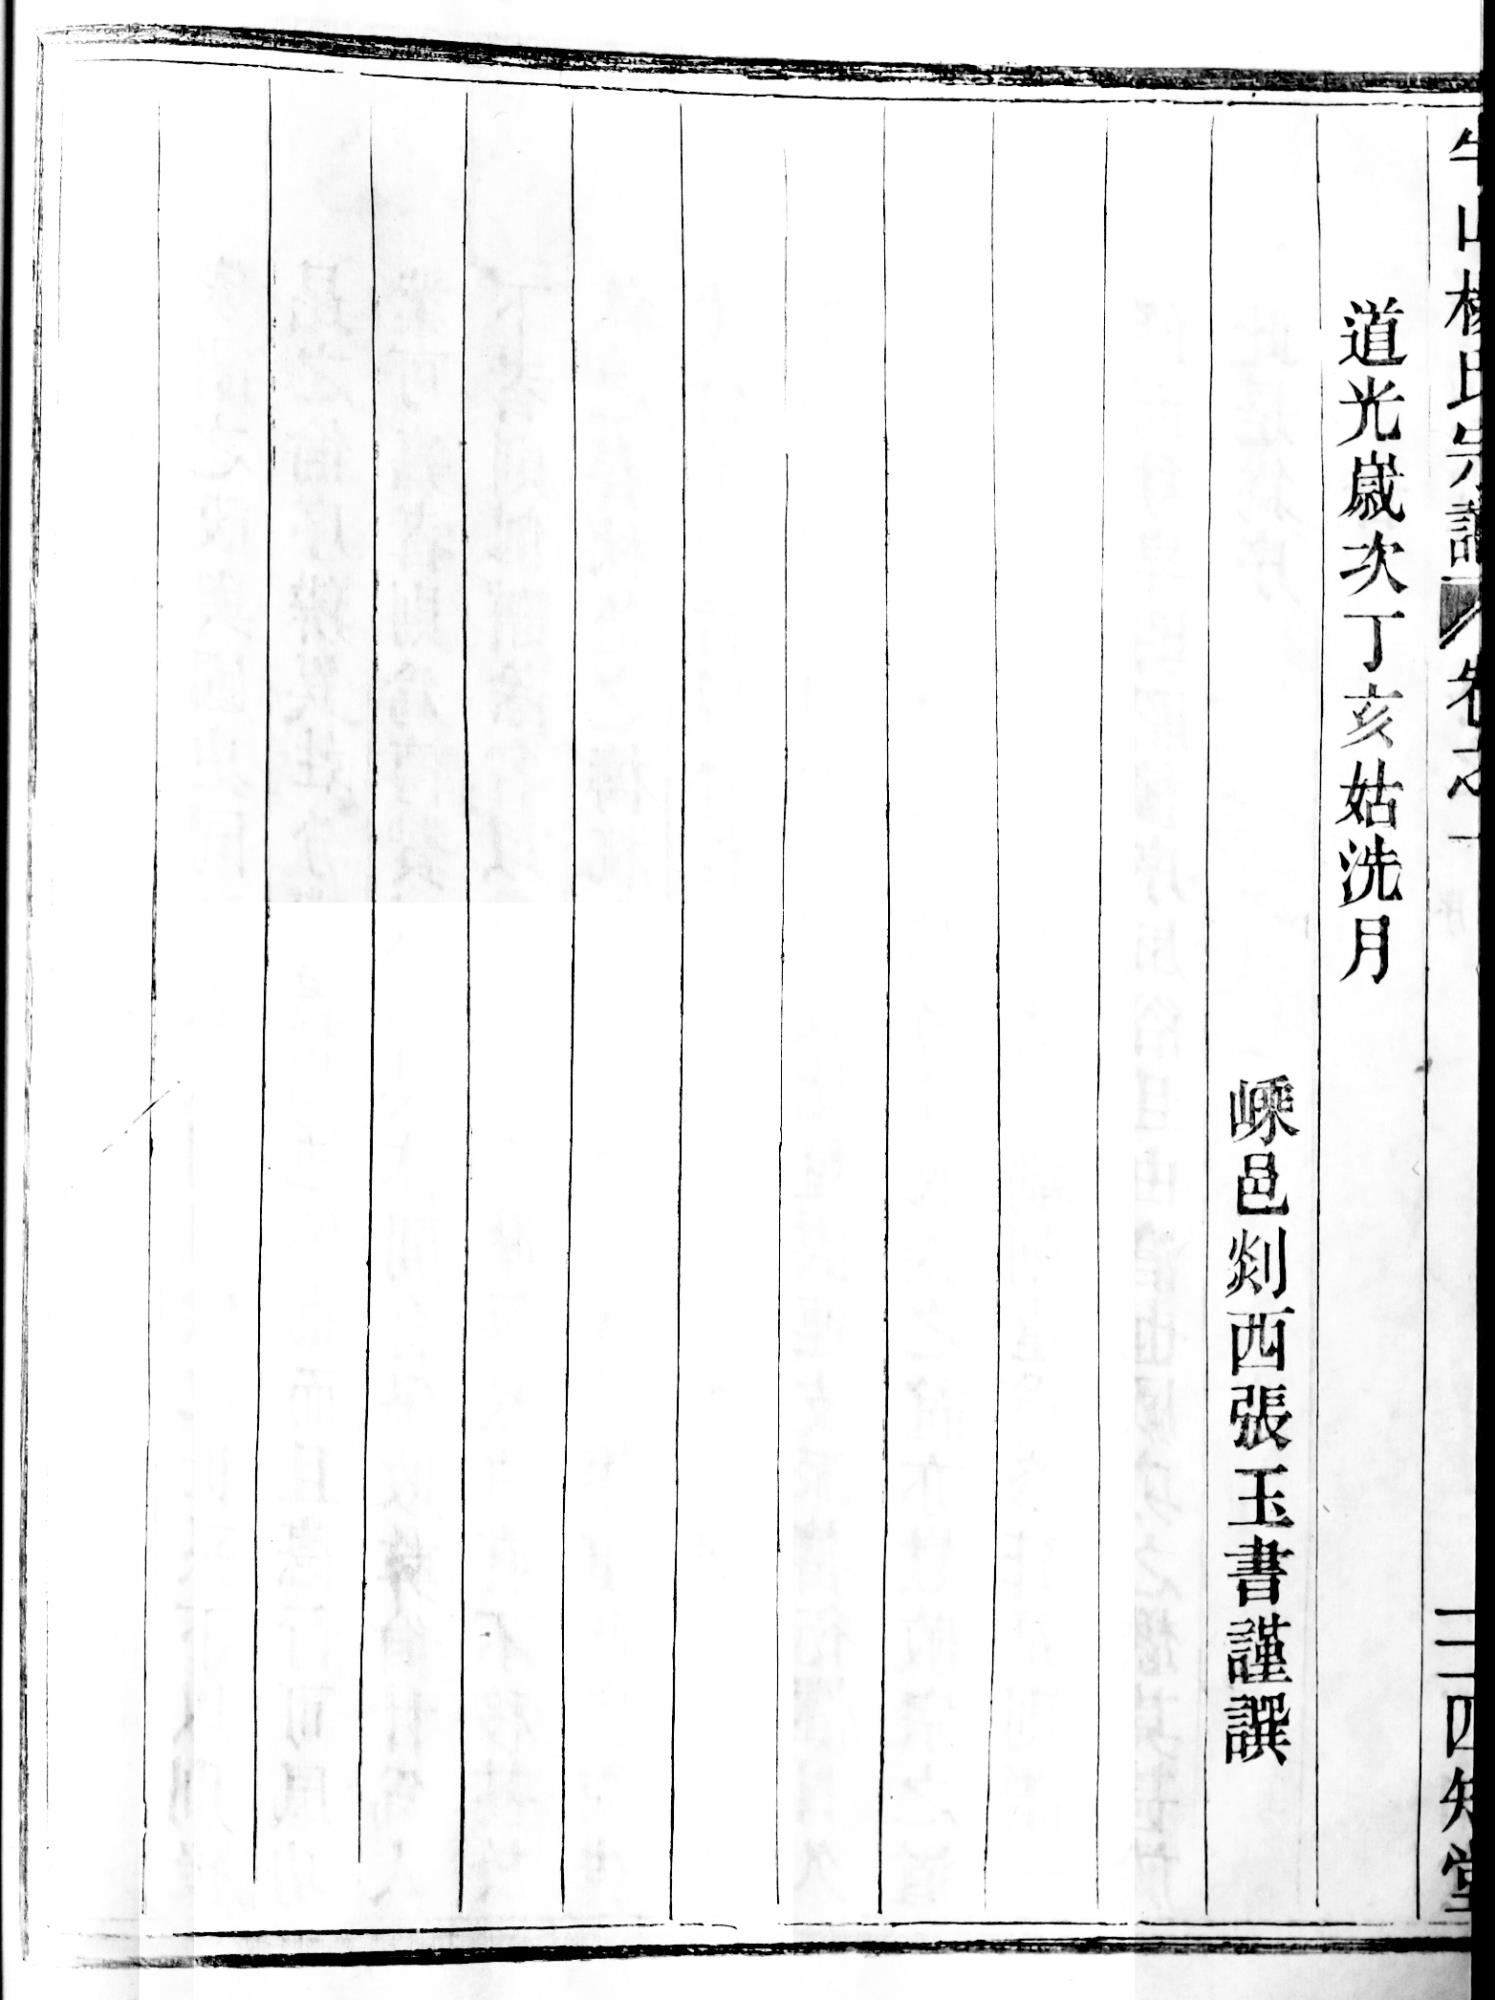 山楊氏宗譜 卷之一 二 四知堂
道光歲次丁亥姑洗月
嵊邑剡西張玉書謹譔